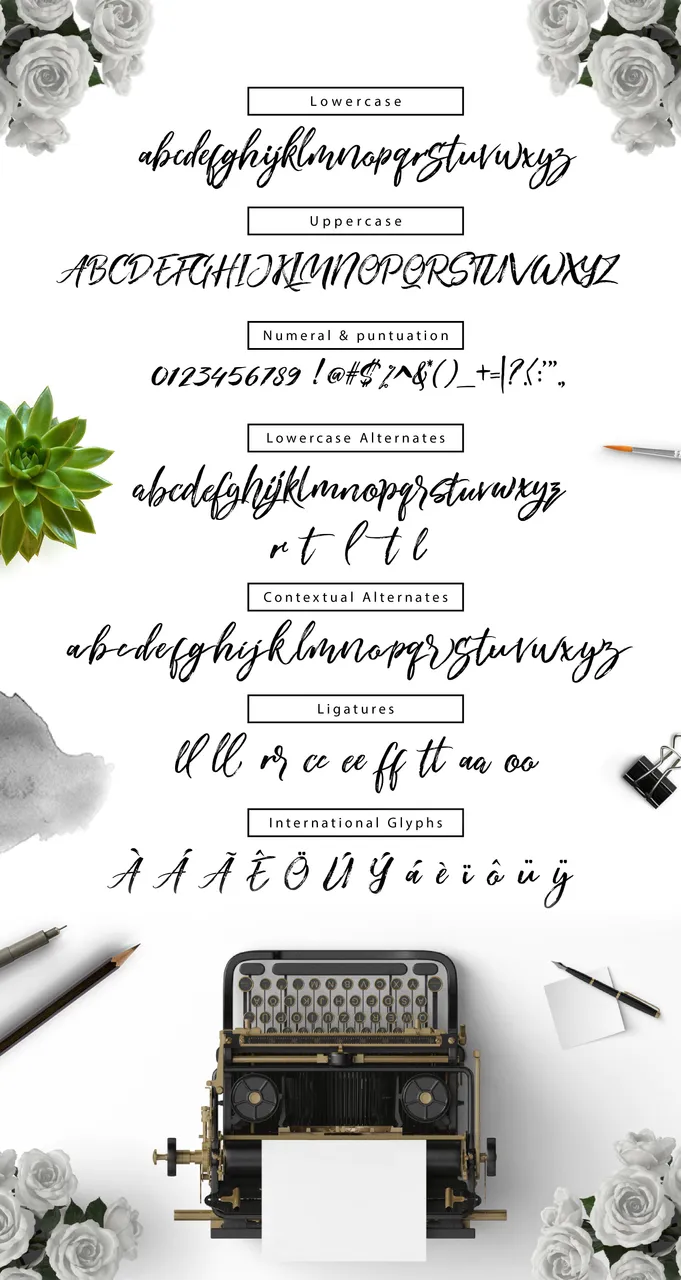 Lowercase
abcdefghijklmnopqrstuvwxyz
Uppercase
ABCDEFGHIJKLMNOPQRSTUVWXYZ
Numeral & puntuation
0123456789 !@#$%^&*()_+=|?<:"'.,
Lowercase Alternates
abcdefghijklmnopqrstuvwxyz
r t l t l
Contextual Alternates
abcdefghijklmnopqrstuvwxyz
Ligatures
ll ll rr cc ee ff tt aa oo
International Glyphs
À Á Ã Ê Ö Ú Ý á è ï ô ü ÿ